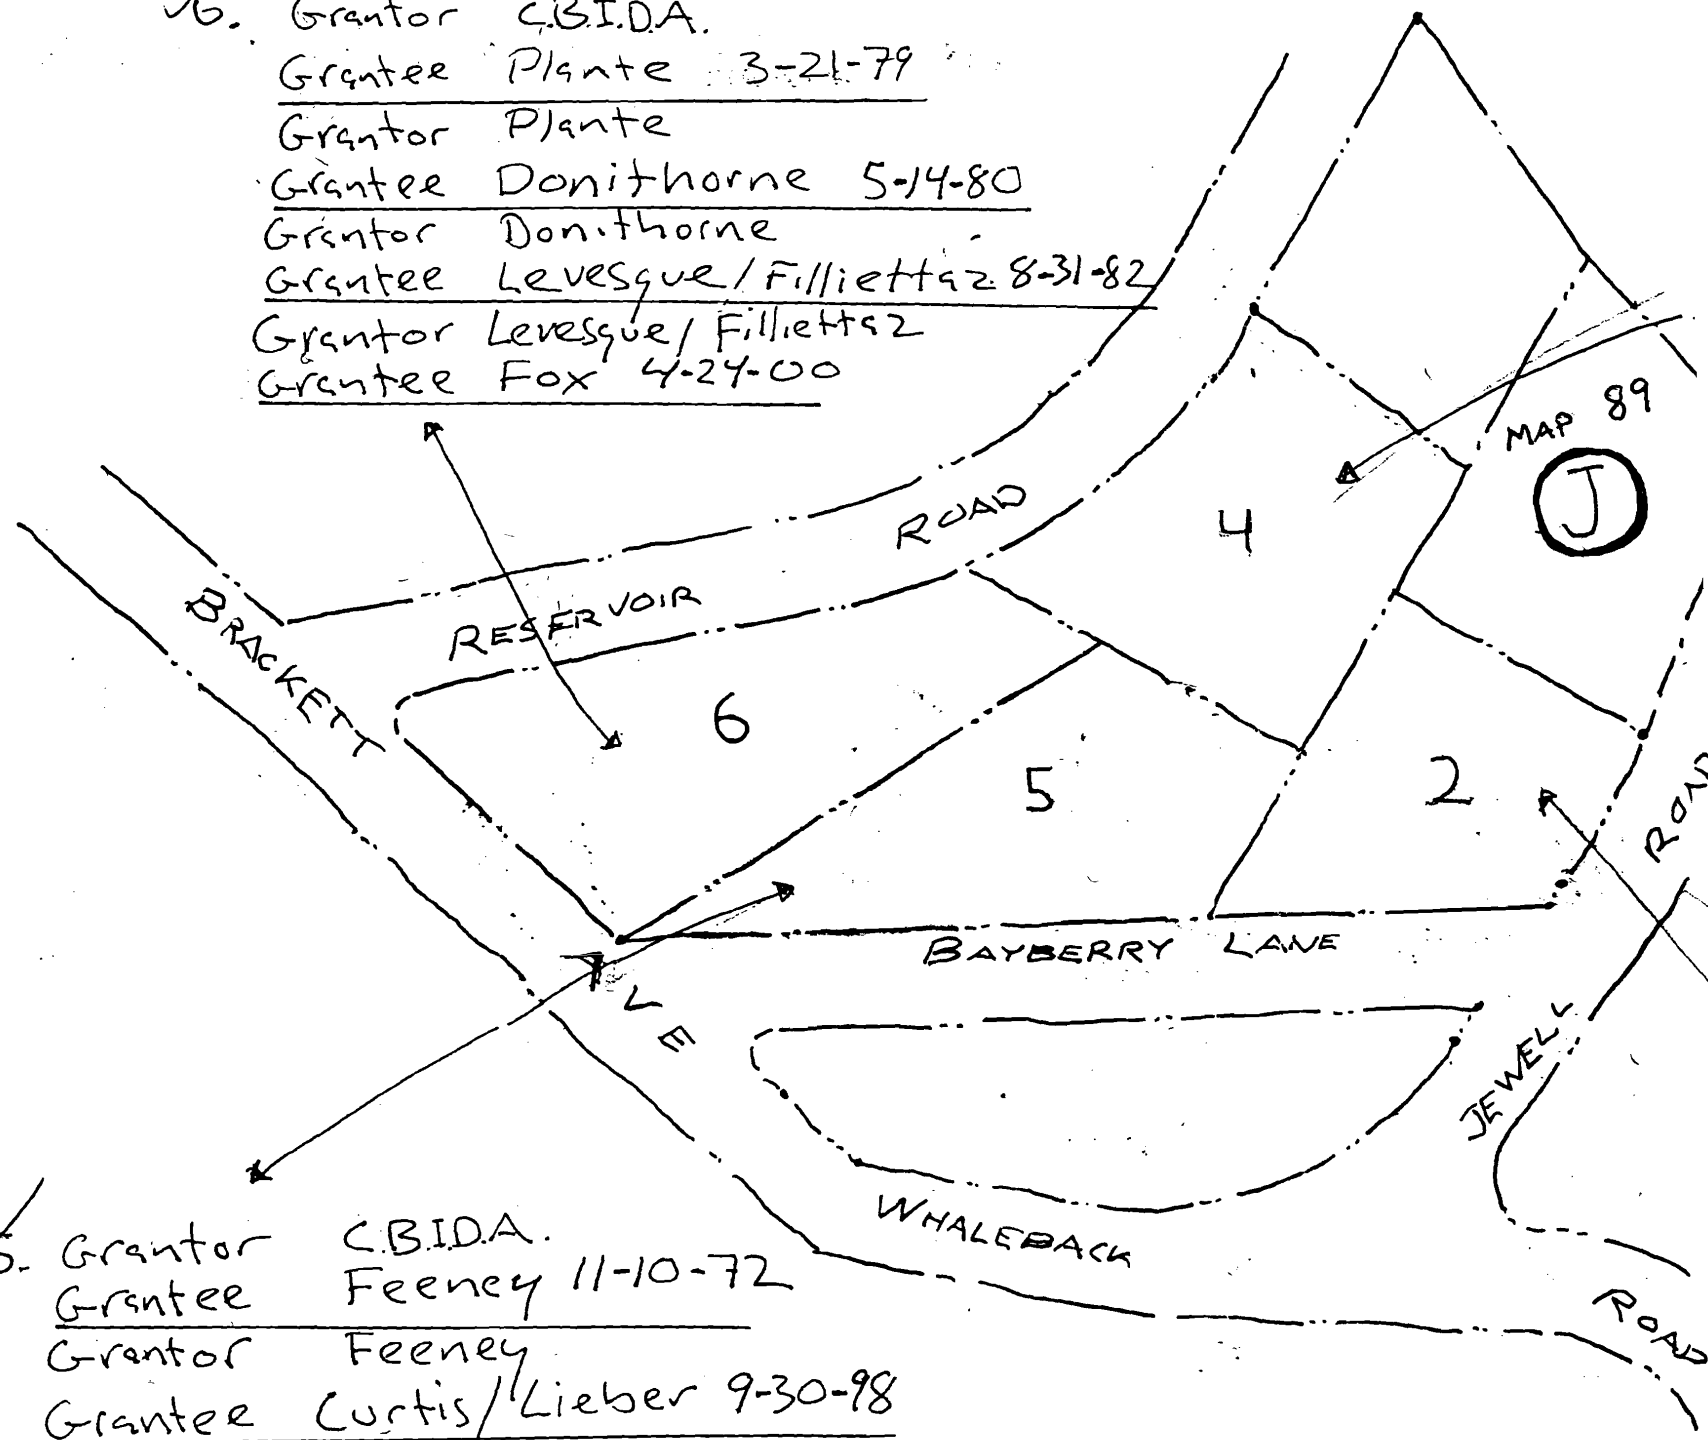 6. Grantor C.B.I.D.A.
Grantee Plante 3-21-79
Grantor Plante
Grantee Donithorne 5-14-80
Grantor Donithorne
Grantee Levesque/Fillietta2 8-31-82
Grantor Levesque/Fillietta2
Grantee Fox 4-24-00
MAP 89
J
4
ROAD
RESERVOIR
BRACKETT
6
5
2
ROAD
BAYBERRY LANE
AVE
JEWELL
WHALEBACK
ROAD
5. Grantor C.B.I.D.A.
Grantee Feeney 11-10-72
Grantor Feeney
Grantee Curtis/Lieber 9-30-98